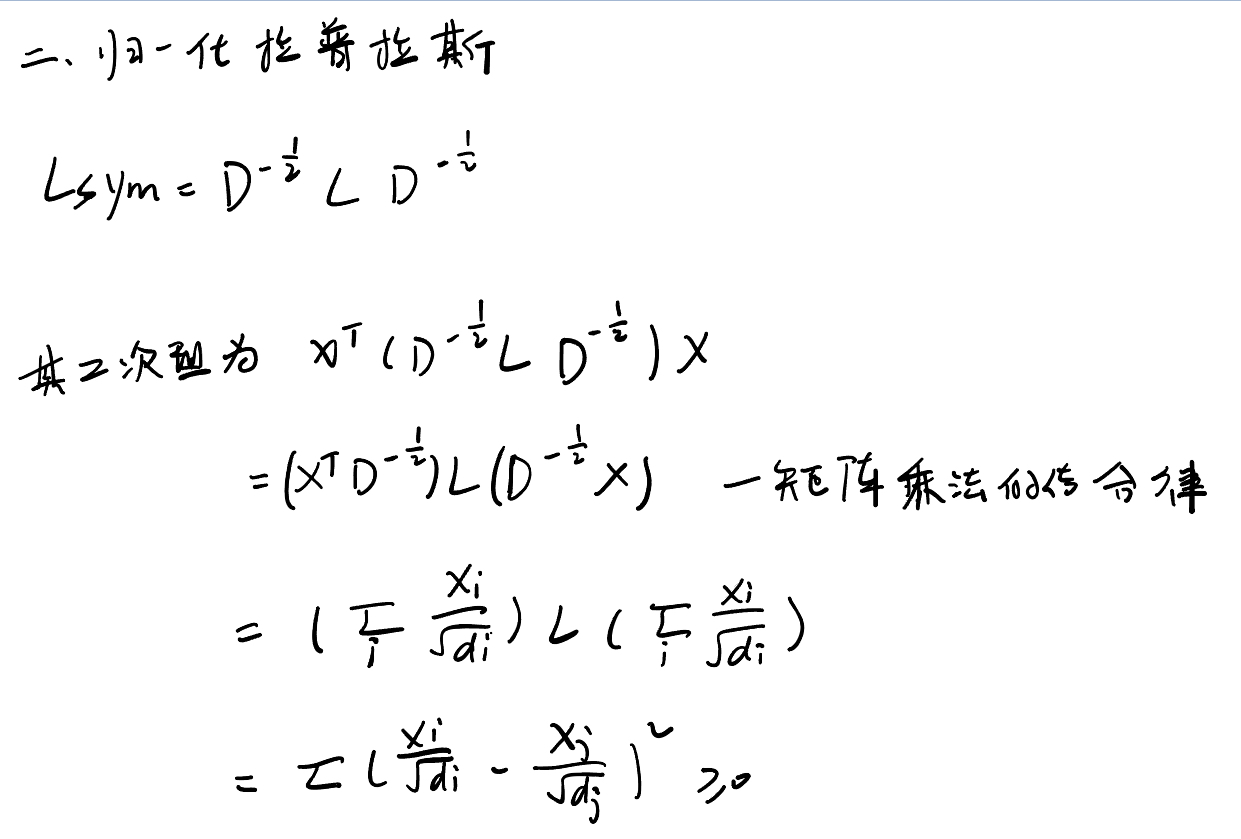 二、归一化拉普拉斯
Lsym = D^{-\frac{1}{2}} L D^{-\frac{1}{2}}
其二次型为 x^T (D^{-\frac{1}{2}} L D^{-\frac{1}{2}}) x
= (x^T D^{-\frac{1}{2}}) L (D^{-\frac{1}{2}} x) — 矩阵乘法的结合律
= (\sum_i \frac{x_i}{\sqrt{d_i}}) L (\sum_i \frac{x_i}{\sqrt{d_i}})
= \sum (\frac{x_i}{\sqrt{d_i}} - \frac{x_j}{\sqrt{d_j}})^2 ≥ 0